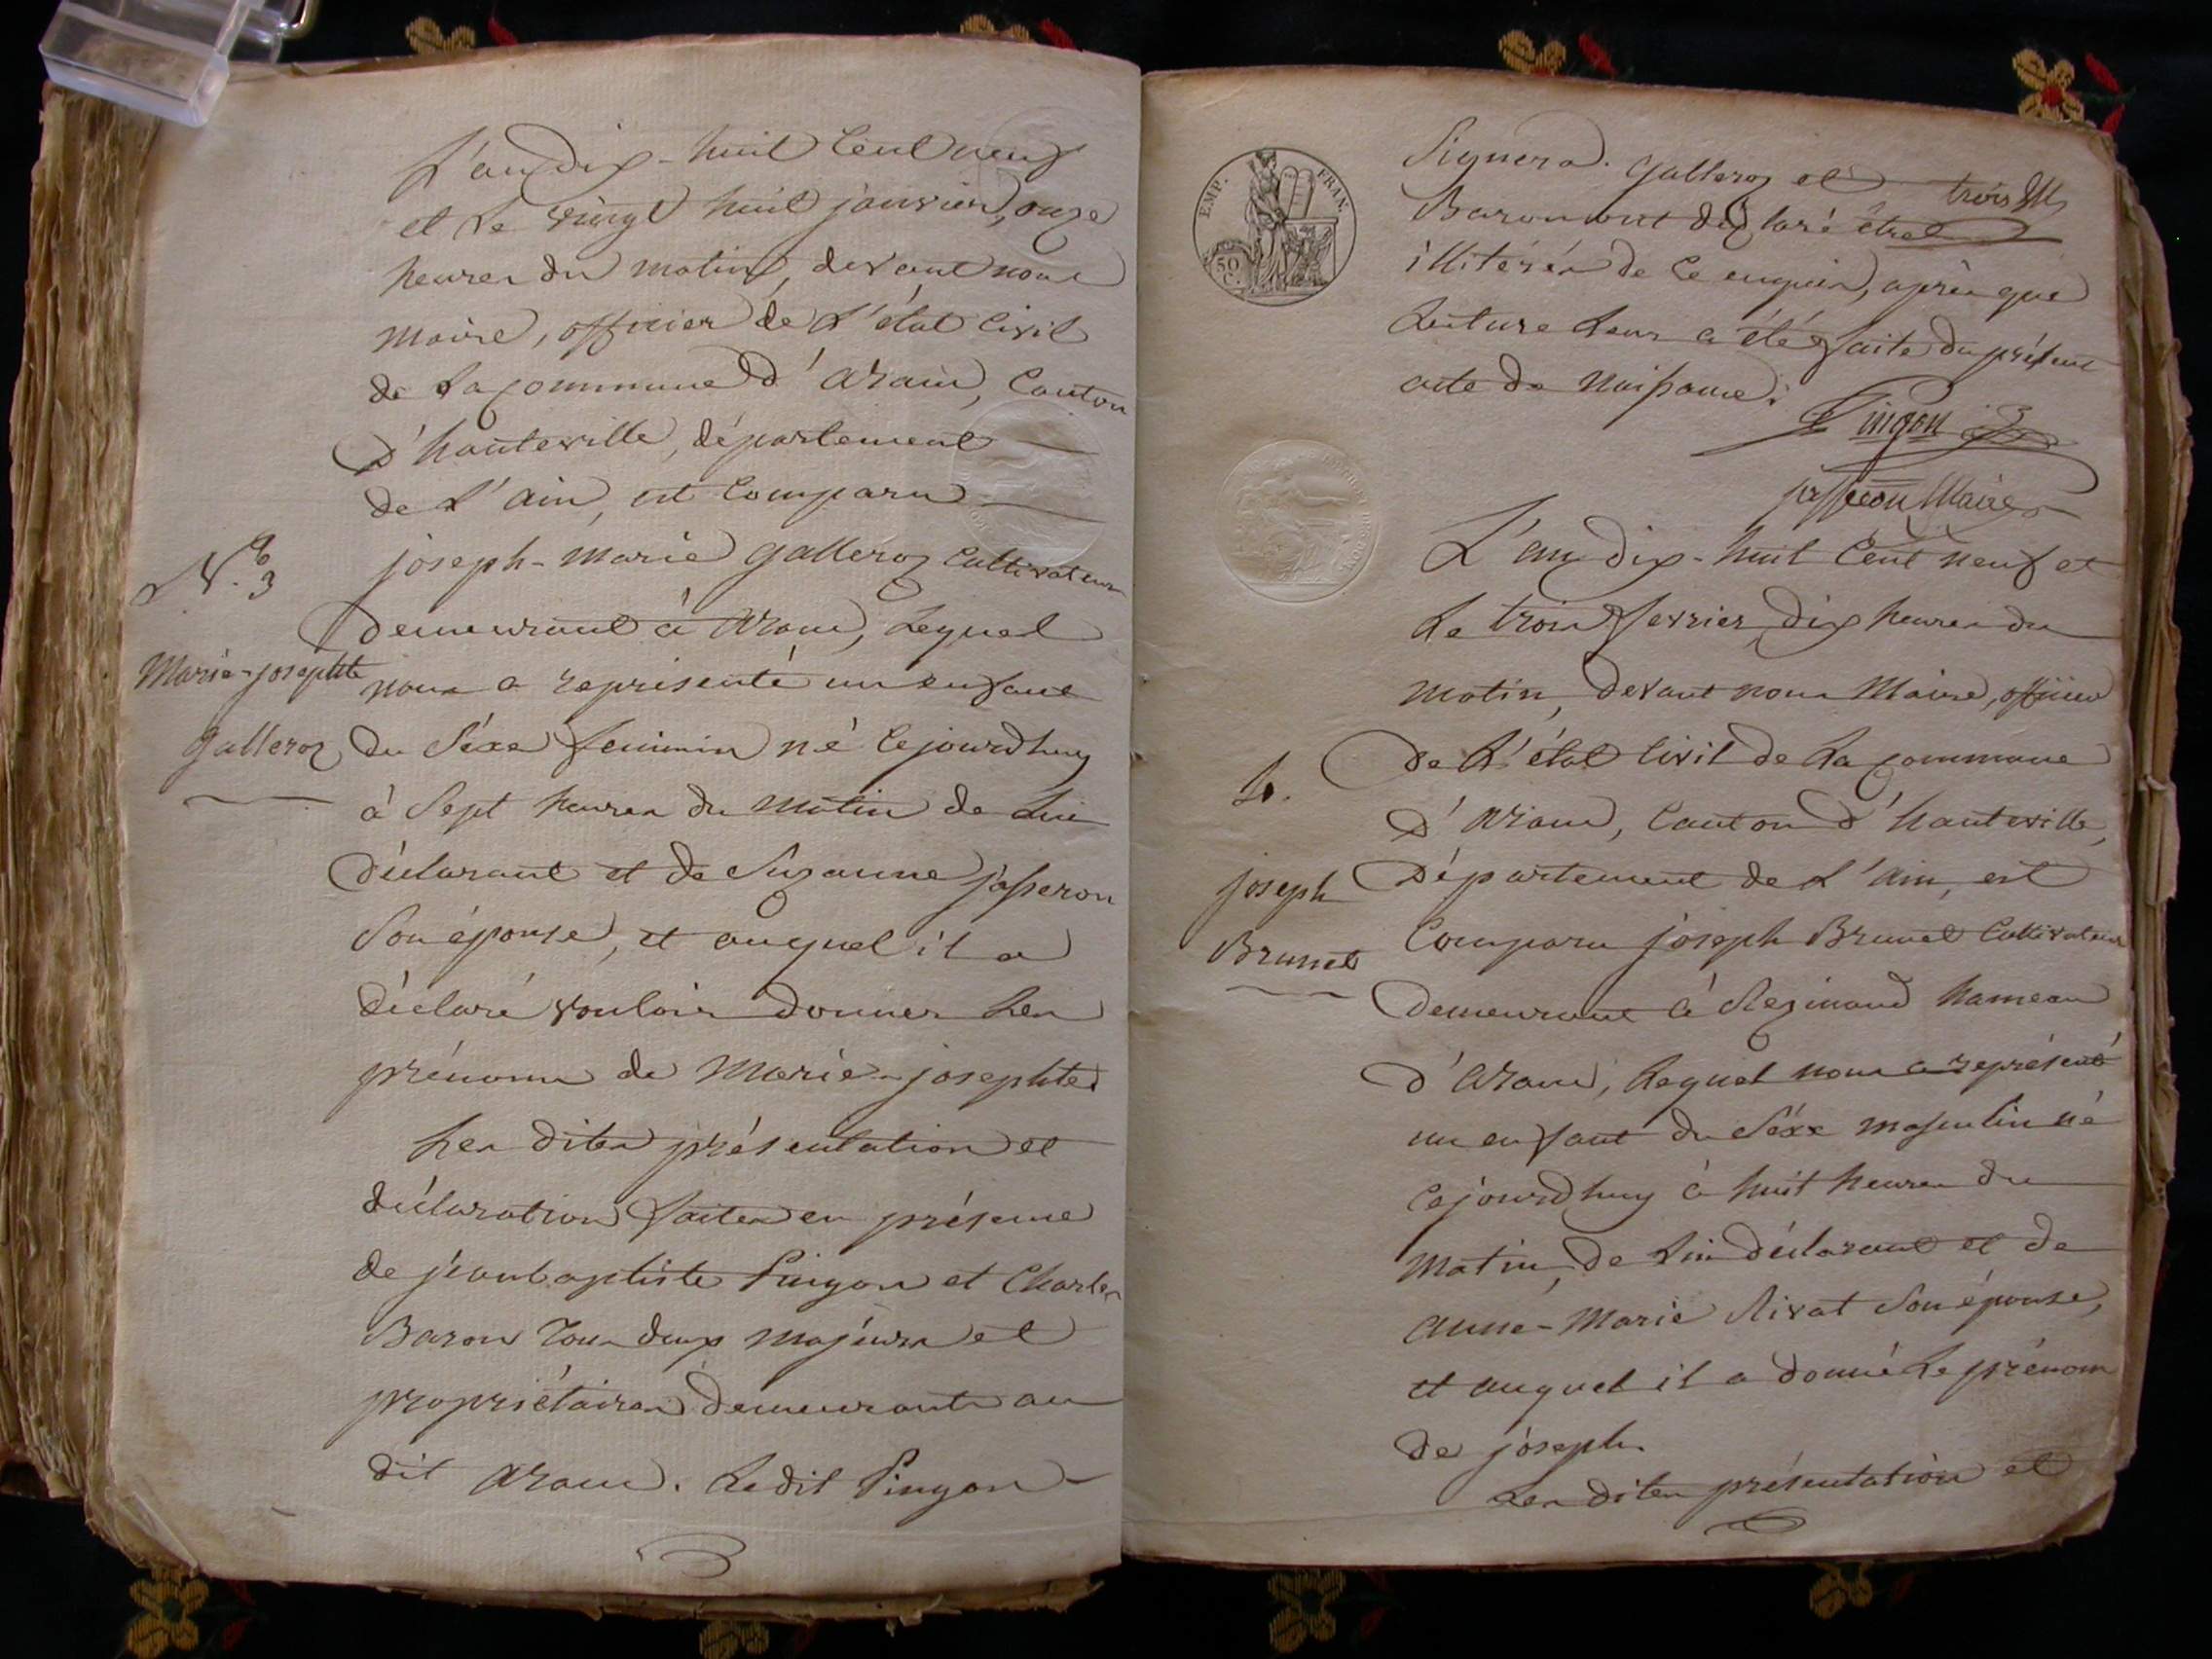 L'an dix-huit cent neuf
et le vingt huit janvier, onze
heures du matin, devant nous
maire, officier de l'état civil
de la commune d'aranc, canton
d'hauteville, département
de l'ain, est comparu
N.º 3
joseph-marie galleroz cultivateur
demeurant à aranc, lequel
Marie-josephte
nous a représenté un enfant
galleroz
du séxe feminin né cejourdhuy
à sept heures du matin de lui
déclarant et de Suzanne jasseron
son épouse, et auquel il a
déclaré vouloir donner les
prénoms de Marie-josephte
les dites présentation et
déclaration faites en présence
de jeanbaptiste Pingon et Charles
Baron tous deux majeurs et
propriétaires demeurants au
dit aranc. ledit Pingon
EMP. FRAN.
50 C.
signera. galleroz et
trois
Baron ont déclaré être
illitérés de ce enquis, après que
lecture leur a été faite du présent
acte de naissance.
Pingon
jasseron Maire
L'an dix-huit cent neuf et
le trois fevrier dix heures du
matin, devant nous Maire, officier
de l'état civil de la commune
4.
d'aranc, canton d'hauteville,
joseph
département de l'ain, est
Brunet
comparu joseph Brunet cultivateur
demeurant à Rezinand hameau
d'aranc, lequel nous a représenté
un enfant du séxe masculin né
cejourdhuy à huit heures du
matin, de lui déclarant et de
anne-Marie Rivat son épouse,
et auquel il a donné le prénom
de joseph.
les dites présentation et